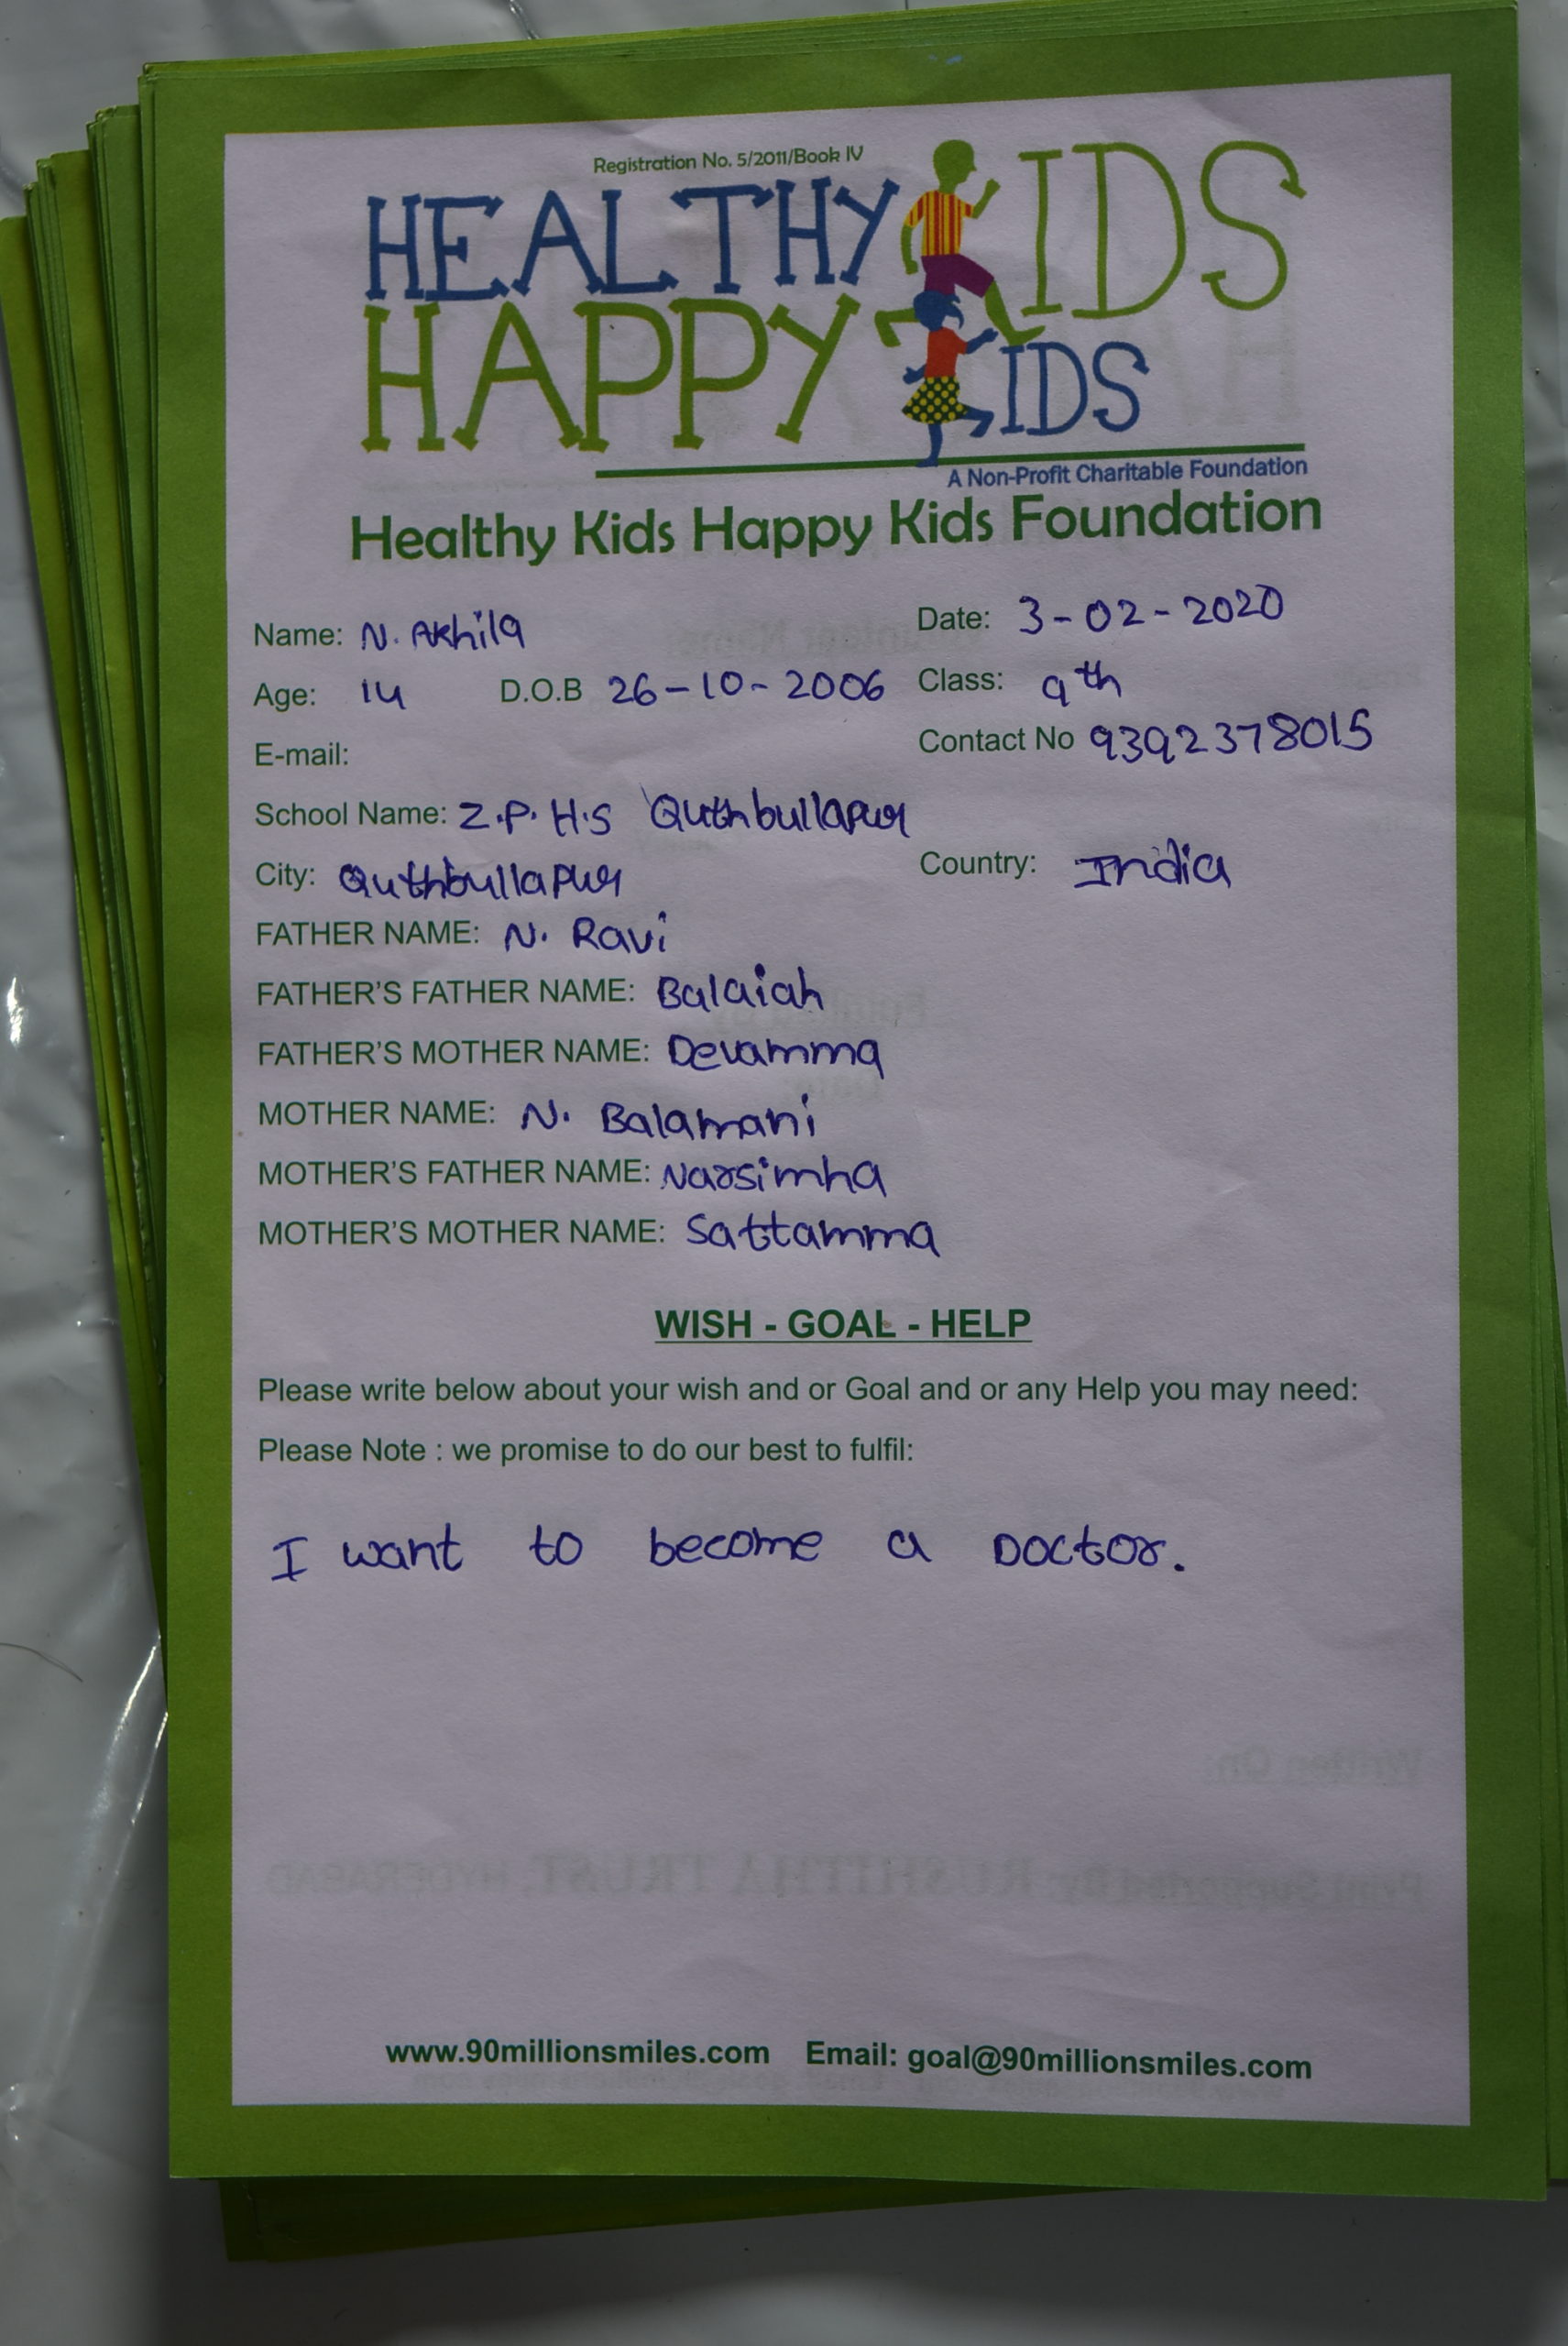 Registration No. 5/2011/Book IV
HEALTHY KIDS
HAPPY KIDS
A Non-Profit Charitable Foundation
Healthy Kids Happy Kids Foundation
Name: N. Akhila Date: 3-02-2020
Age: 14 D.O.B 26-10-2006 Class: 9th
E-mail: Contact No 9392378015
School Name: Z.P.H.S Quthbullapur
City: Quthbullapur Country: India
FATHER NAME: N. Ravi
FATHER'S FATHER NAME: Balaiah
FATHER'S MOTHER NAME: Devamma
MOTHER NAME: N. Balamani
MOTHER'S FATHER NAME: Narsimha
MOTHER'S MOTHER NAME: Sattamma
WISH - GOAL - HELP
Please write below about your wish and or Goal and or any Help you may need:
Please Note : we promise to do our best to fulfil:
I want to become a Doctor.
Written On:
Print Supported By: RUSHITHA TRUST, HYDERABAD
www.90millionsmiles.com Email: goal@90millionsmiles.com